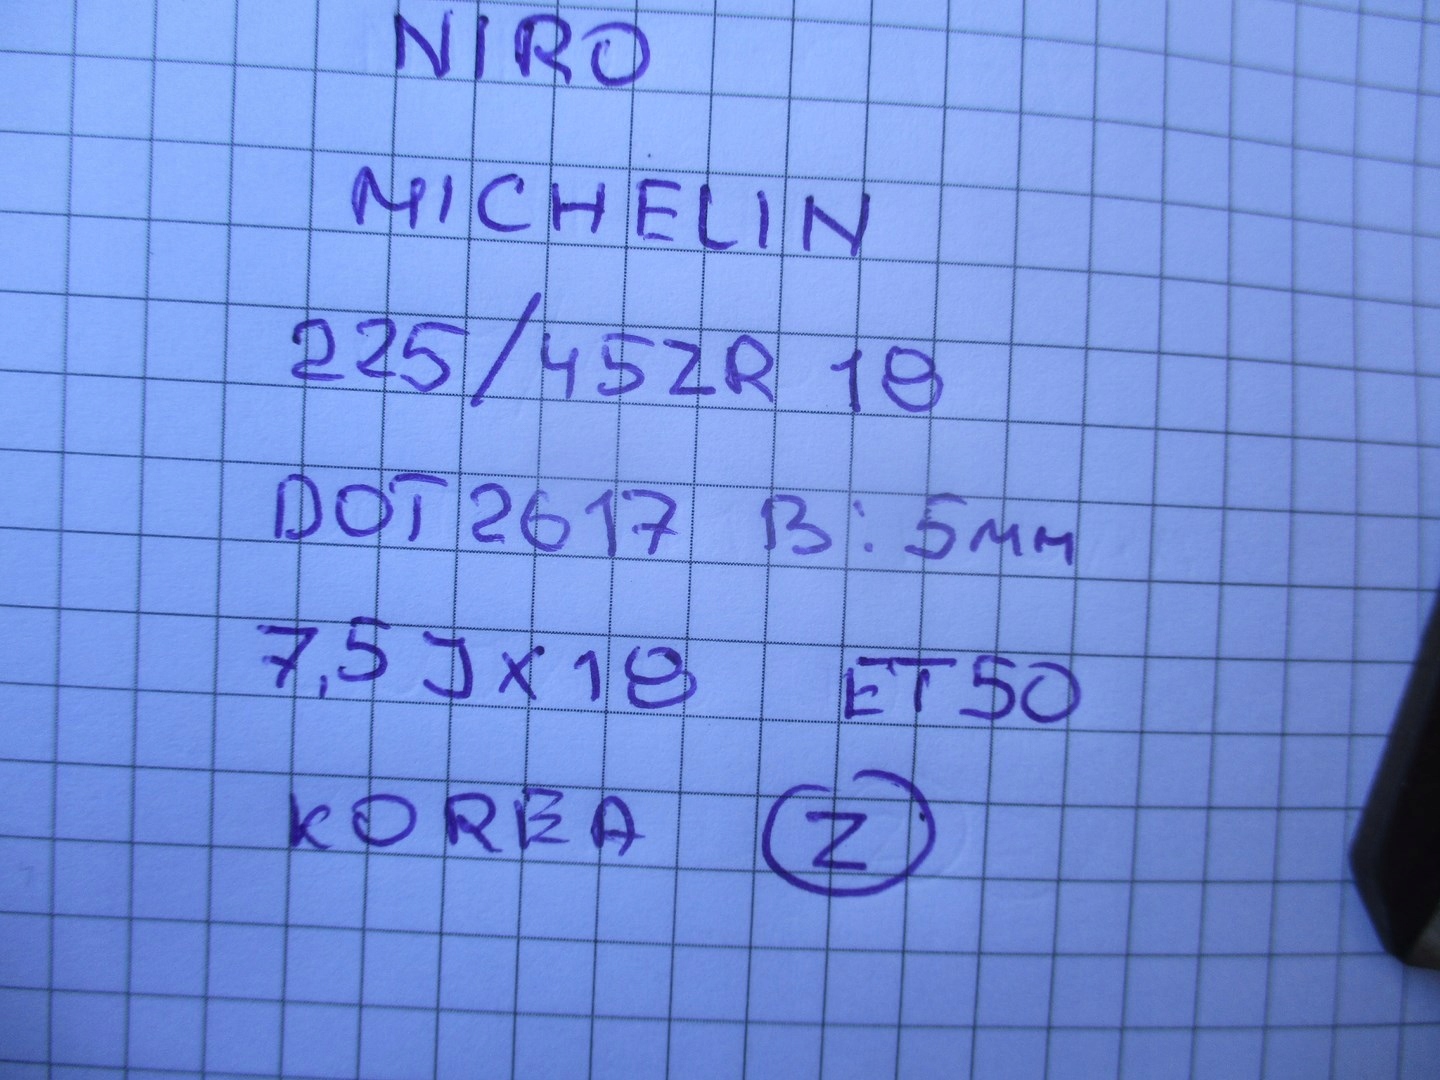 NIRO
MICHELIN
225/45ZR 18
DOT 2617 B: 5мм
7,5 J x 18 ET 50
KOREA Z